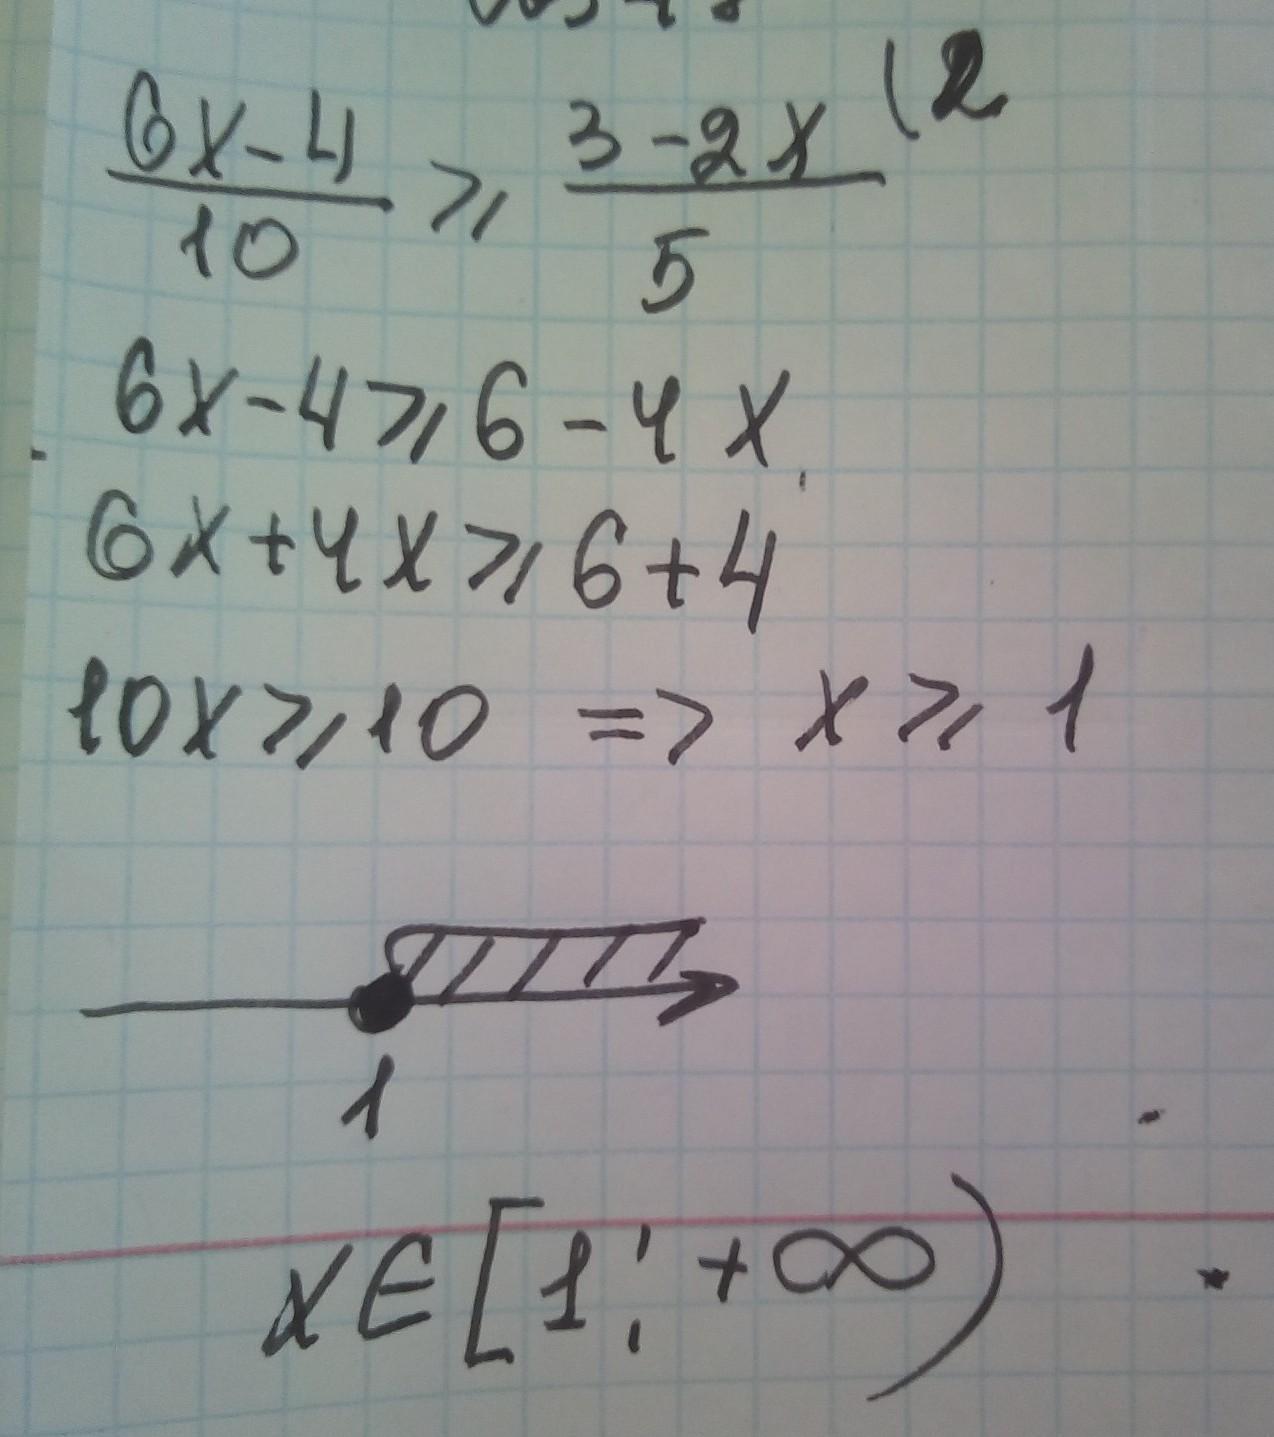 6x-4/10 ⩾ 3-2x/5 (2
6x-4⩾6-4x
6x+4x⩾6+4
10x⩾10 => x ⩾ 1
1
x∈[1;+∞)